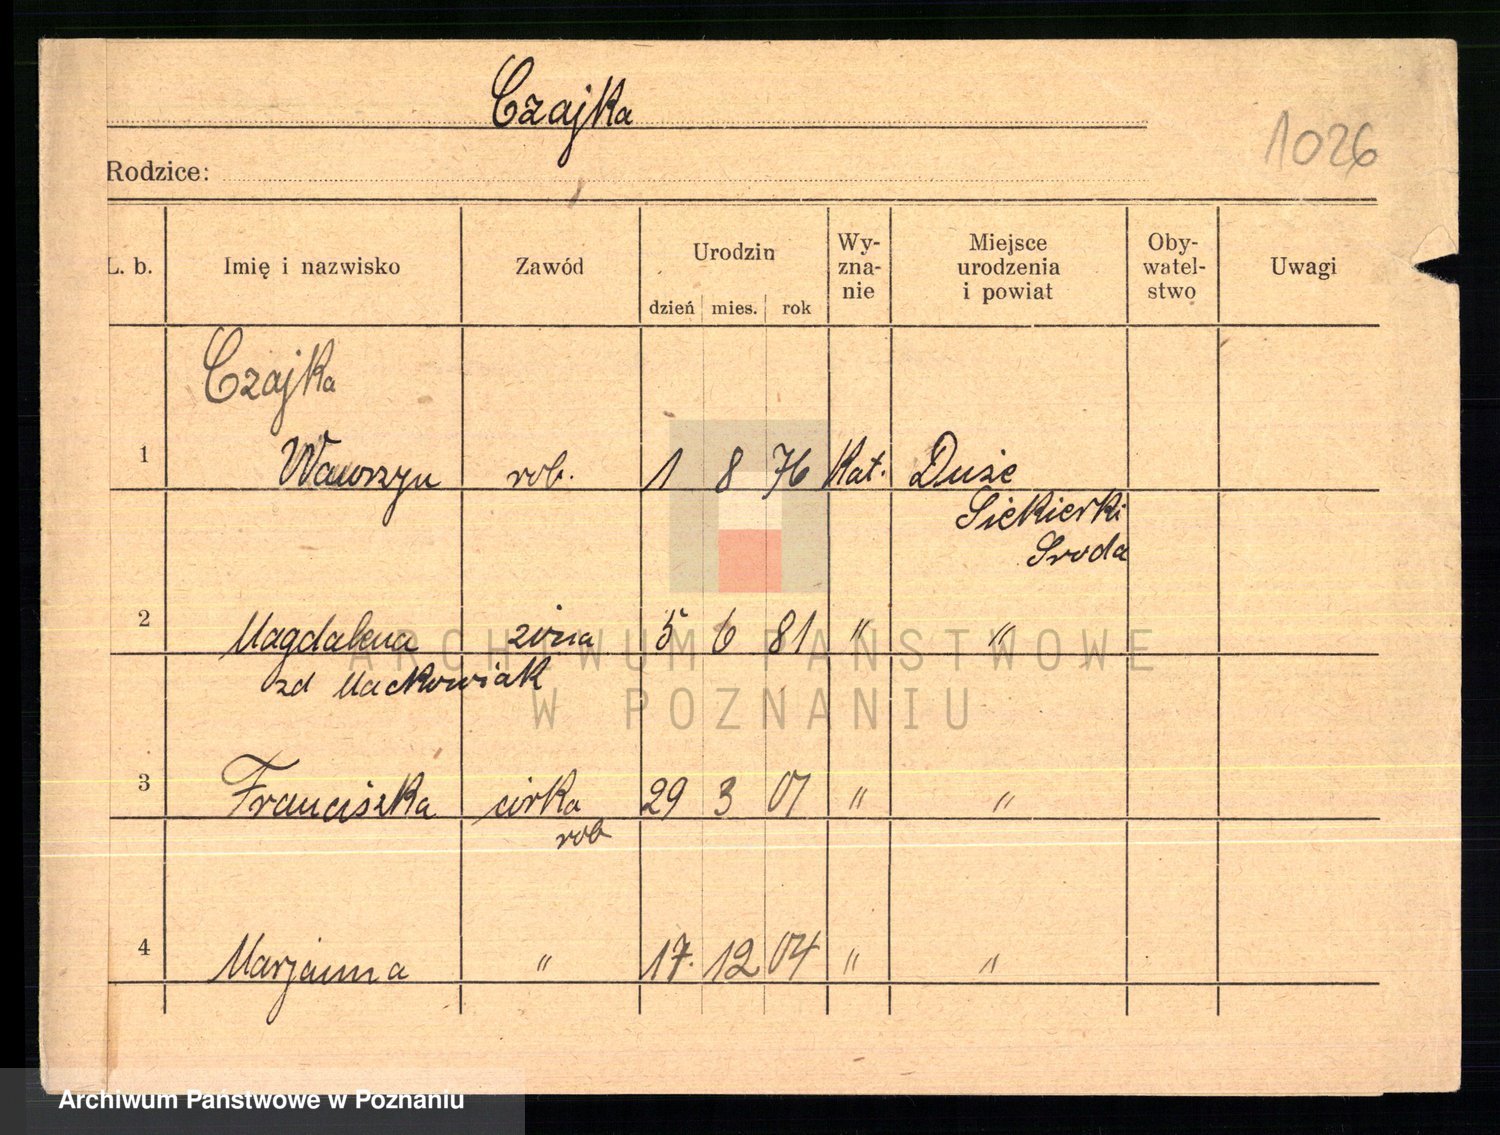 Czajka
1026
Rodzice:
L. b. Imię i nazwisko Zawód Urodzin dzień mies. rok Wy-zna-nie Miejsce urodzenia i powiat Oby-watel-stwo Uwagi
Czajka
1 Wawrzyn rob. 1 8 76 Kat. Duże
Siekierki
Sroda
2 Magdalena żona 5 6 81 " "
zd Mackowiak
3 Franciszka cirka 29 3 01 " "
rob
4 Marjanna " 17. 12 04 " "
ARCHIWUM PAŃSTWOWE
W POZNANIU
Archiwum Państwowe w Poznaniu